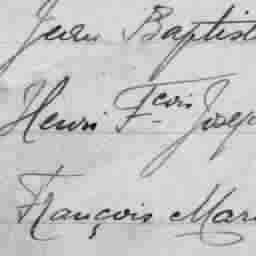 Jean Baptist
Henri F.cois Josep
François Mari